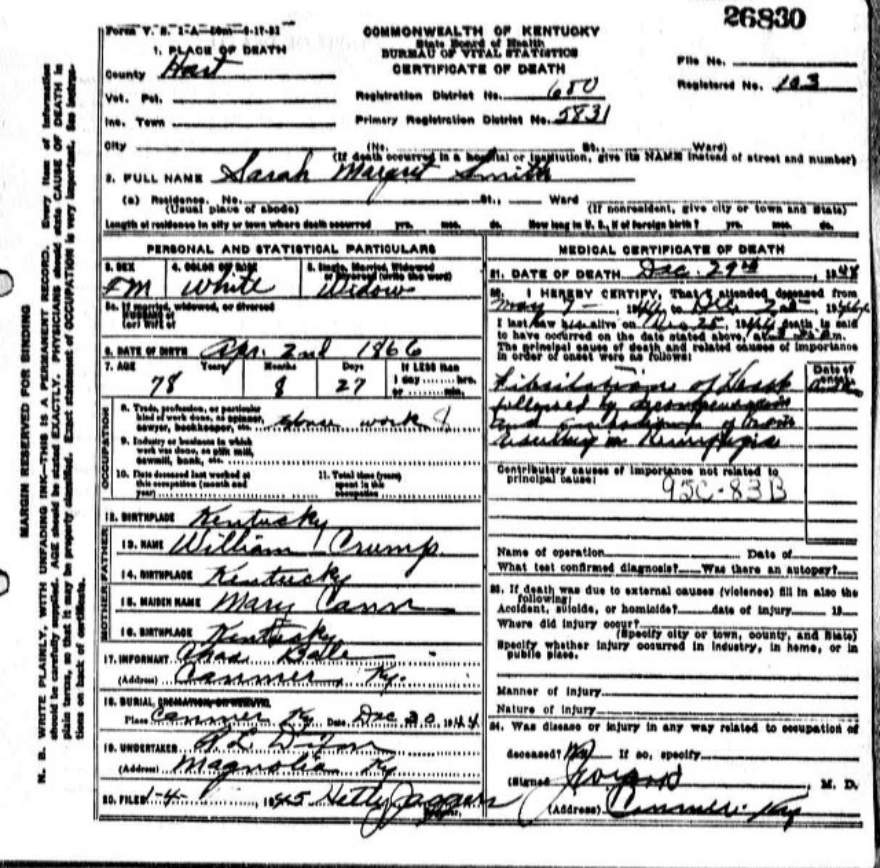 26830
Form V. S. 1-A
COMMONWEALTH OF KENTUCKY
State Board of Health
BUREAU OF VITAL STATISTICS
CERTIFICATE OF DEATH
1. PLACE OF DEATH
County Hart
File No.
Registered No. 103
Vot. Pct.
Registration District No. 650
Inc. Town
Primary Registration District No. 5831
City (No. St., Ward)
(If death occurred in a hospital or institution, give its NAME instead of street and number)
2. FULL NAME Sarah Margret Smith
(a) Residence. No. St., Ward
(Usual place of abode) (If nonresident, give city or town and State)
Length of residence in city or town where death occurred yrs. mos. ds. How long in U. S., if of foreign birth? yrs. mos. ds.
PERSONAL AND STATISTICAL PARTICULARS
3. SEX 4. COLOR OR RACE 5. Single, Married, Widowed
or Divorced (write the word)
FM White Widow
5a. If married, widowed, or divorced
HUSBAND of
(or) WIFE of
6. DATE OF BIRTH Apr. 2nd 1866
7. AGE Years Months Days If LESS than
1 day hrs.
or min.
78 8 27
OCCUPATION
8. Trade, profession, or particular
kind of work done, as spinner,
sawyer, bookkeeper, etc. House work
9. Industry or business in which
work was done, as silk mill,
sawmill, bank, etc.
10. Date deceased last worked at
this occupation (month and
year)
11. Total time (years)
spent in this
occupation
12. BIRTHPLACE Kentucky
FATHER
13. NAME William Crump
14. BIRTHPLACE Kentucky
MOTHER
15. MAIDEN NAME Mary Cann
16. BIRTHPLACE Kentucky
17. INFORMANT Chas
(Address) Canmer, Ky.
18. BURIAL, CREMATION, OR REMOVAL
Place Canmer Ky Date Dec 30, 1944
19. UNDERTAKER
(Address) Magnolia Ky
20. FILED 1-4-, 1945 Hetty Jaggers
MEDICAL CERTIFICATE OF DEATH
21. DATE OF DEATH Dec. 29th, 19
22. I HEREBY CERTIFY, That I attended deceased from
May 7, to
I last saw alive on, death is said
to have occurred on the date stated above, at m.
The principal cause of death and related causes of importance
in order of onset were as follows:
Date of
onset
of Heart
followed by
and of
resulting in
Contributory causes of importance not related to
principal cause:
95C-83B
Name of operation Date of
What test confirmed diagnosis? Was there an autopsy?
23. If death was due to external causes (violence) fill in also the
following:
Accident, suicide, or homicide? date of injury 19
Where did injury occur?
(Specify city or town, county, and State)
Specify whether injury occurred in industry, in home, or in
public place.
Manner of injury
Nature of injury
24. Was disease or injury in any way related to occupation of
deceased? No If so, specify
(Signed, M. D.
(Address) Canmer Ky
MARGIN RESERVED FOR BINDING
N. B. WRITE PLAINLY, WITH UNFADING INK—THIS IS A PERMANENT RECORD. Every item of information
should be carefully supplied. AGE should be stated EXACTLY. PHYSICIANS should state CAUSE OF DEATH in
plain terms, so that it may be properly classified. Exact statement of OCCUPATION is very important. See instruc-
tions on back of certificate.